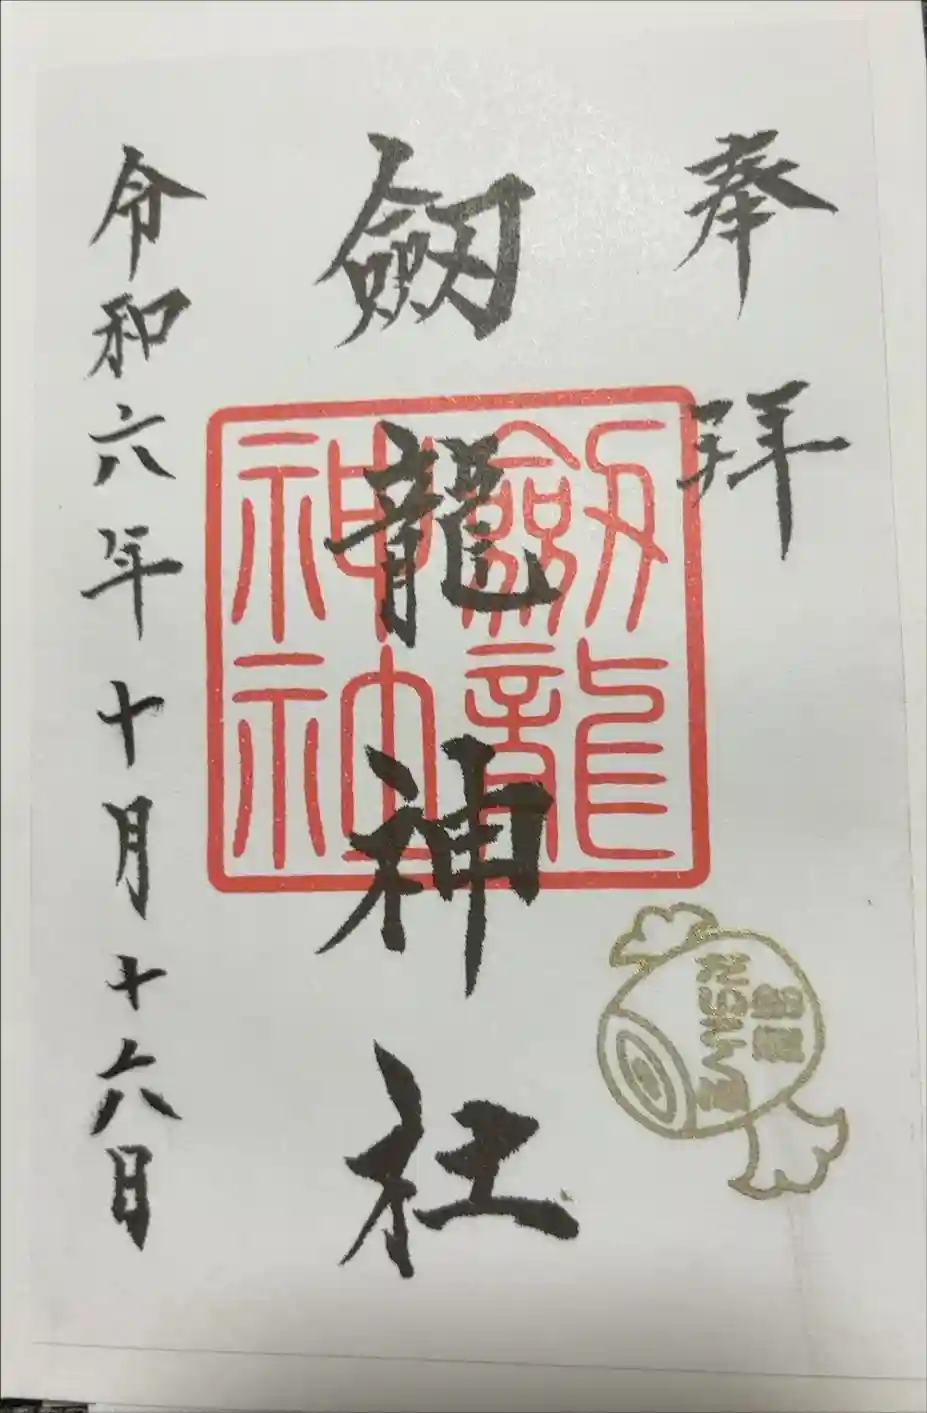 奉拝
劔龍神社
劔龍神社
令和六年十月十六日